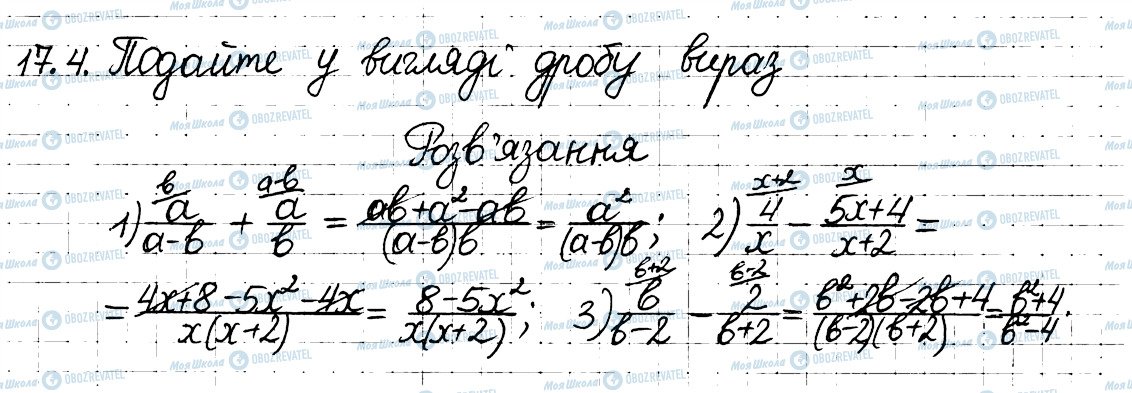 17.4. Подайте у вигляді дробу вираз
Розв'язання
1) a/(a-b) [b] + a/b [a-b] = (ab+a²-ab)/((a-b)b) = a²/((a-b)b); 2) 4/x [x+2] - (5x+4)/(x+2) [x] =
= (4x+8-5x²-4x)/(x(x+2)) = (8-5x²)/(x(x+2)); 3) b/(b-2) [b+2] - 2/(b+2) [b-2] = (b²+2b-2b+4)/((b-2)(b+2)) = (b²+4)/(b²-4).
Моя Школа OBOZREVATEL